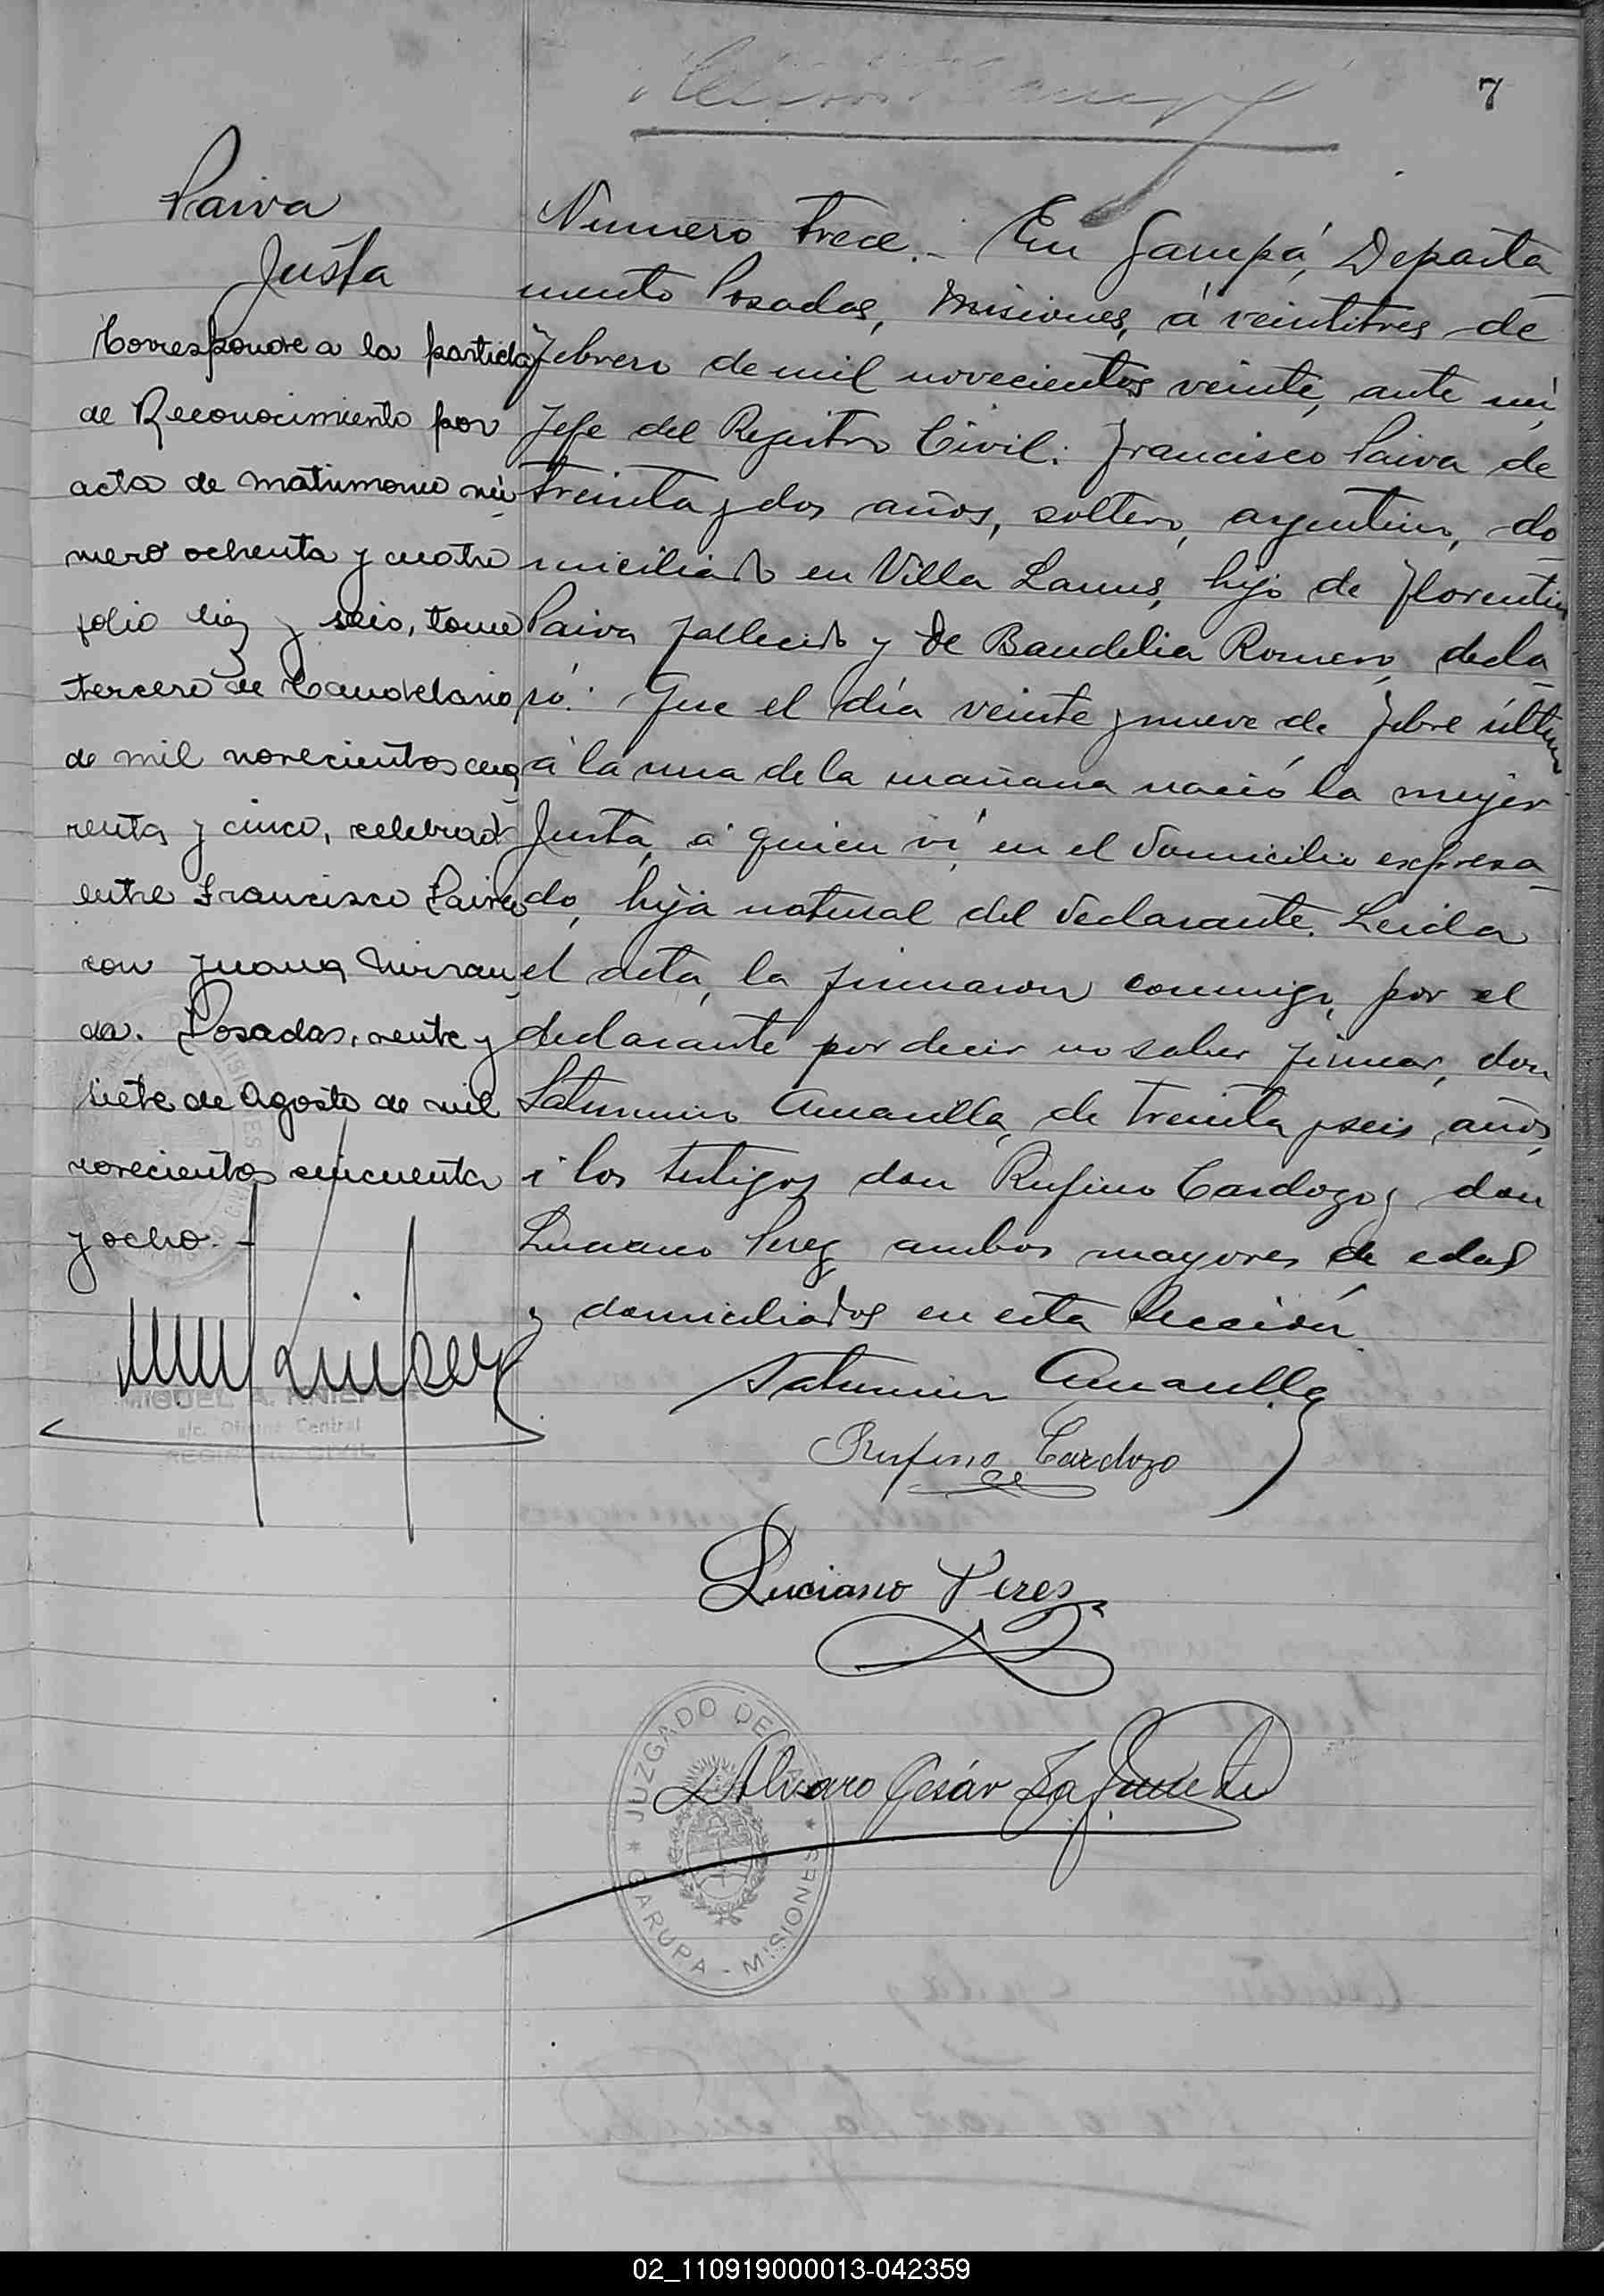 7
Paiva
Justa
Corresponde a la partida
de Reconocimiento por
acta de matrimonio nú
mero ochenta y cuatro
folio diez y seis, tomo
tercero de Candelaria
de mil novecientos cua
renta y cinco, celebrado
entre Francisco Paiva
con Juana Miran
da. Posadas, veinte y
siete de Agosto de mil
novecientos cincuenta
y ocho.-
MIGUEL A. KNIEPER
a/c. Oficina Central
REGISTRO CIVIL
Numero trece.- En Garupá, Departa
mento Posadas, Misiones, á veintitres de
Febrero de mil novecientos veinte, ante mi,
Jefe del Registro Civil: Francisco Paiva de
treinta y dos años, soltero, argentino, do-
miciliado en Villa Lanus, hijo de Florentin
Paiva fallecido y de Baudelia Romero, decla-
ró: Que el día veinte y nueve de Febre último
á la una de la mañana nació la mujer
Justa, á quien ví en el domicilio expresa-
do, hija natural del declarante. Leida
el acta, la firmaron conmigo, por el
declarante por decir no saber firmar, don
Saturnino Amarilla, de treinta y seis años,
i los testigos don Rufino Cardozo y don
Luciano Perez ambos mayores de edad
y domiciliados en esta Sección
Saturnino Amarilla
Rufino Cardozo
Luciano Peres
Alvaro Cesár Lafuente
JUZGADO DE PAZ
GARUPA - MISIONES
02_110919000013-042359